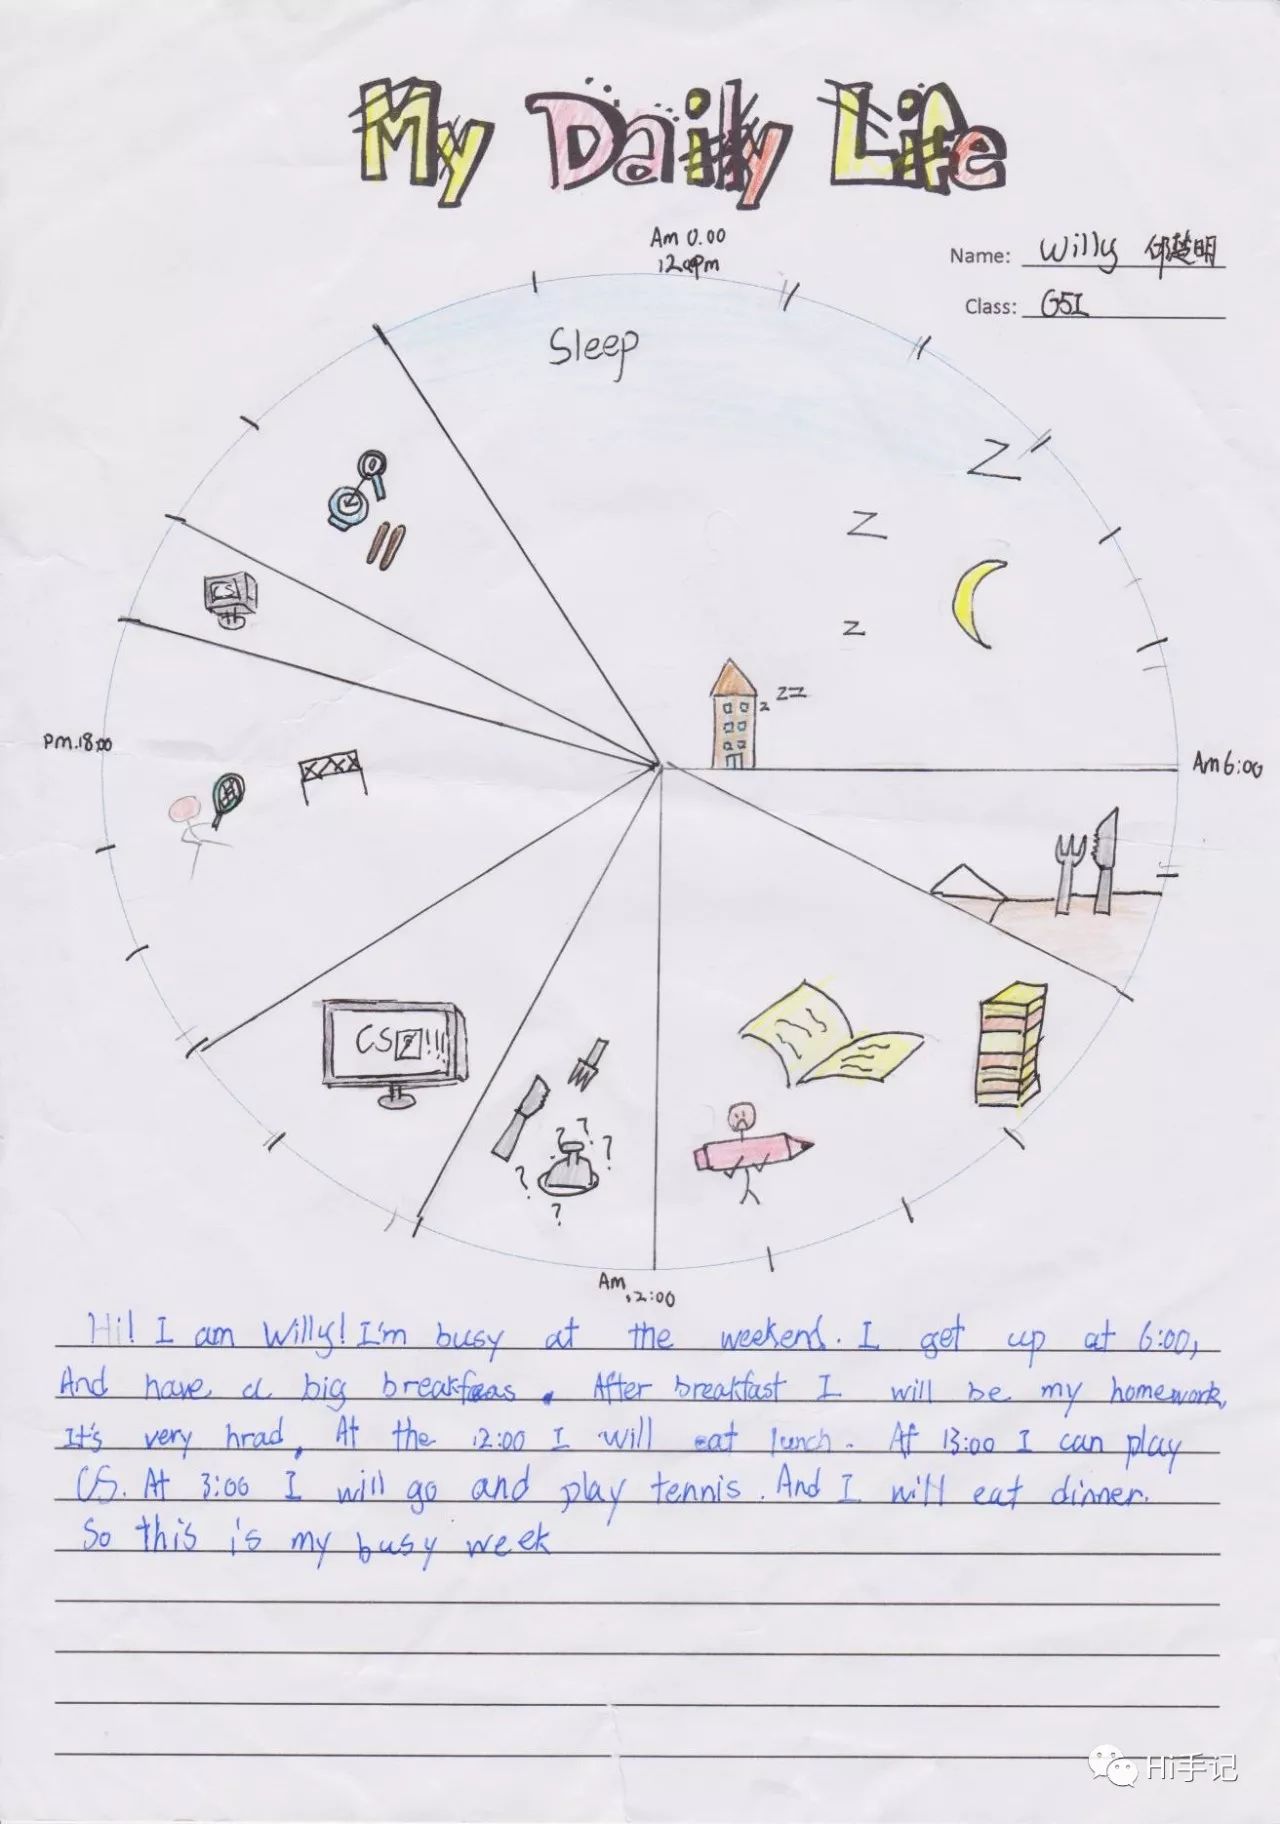 My Daily Life
Am 0.00
12.pm
Name: Willy 邱楚明
Class: G5I
Sleep
Z
Z
Z
z zz
CS
pm.18:00
Am 6:00
CS !!!
? ? ? ? ?
Am 12:00
Hi! I am Willy! I'm busy at the weekend. I get up at 6:00,
And have a big breakfas. After breakfast I will be my homework,
It's very hrad, At the 12:00 I will eat lunch. At 13:00 I can play
CS. At 3:00 I will go and play tennis. And I will eat dinner.
So this is my busy week
Hi手记